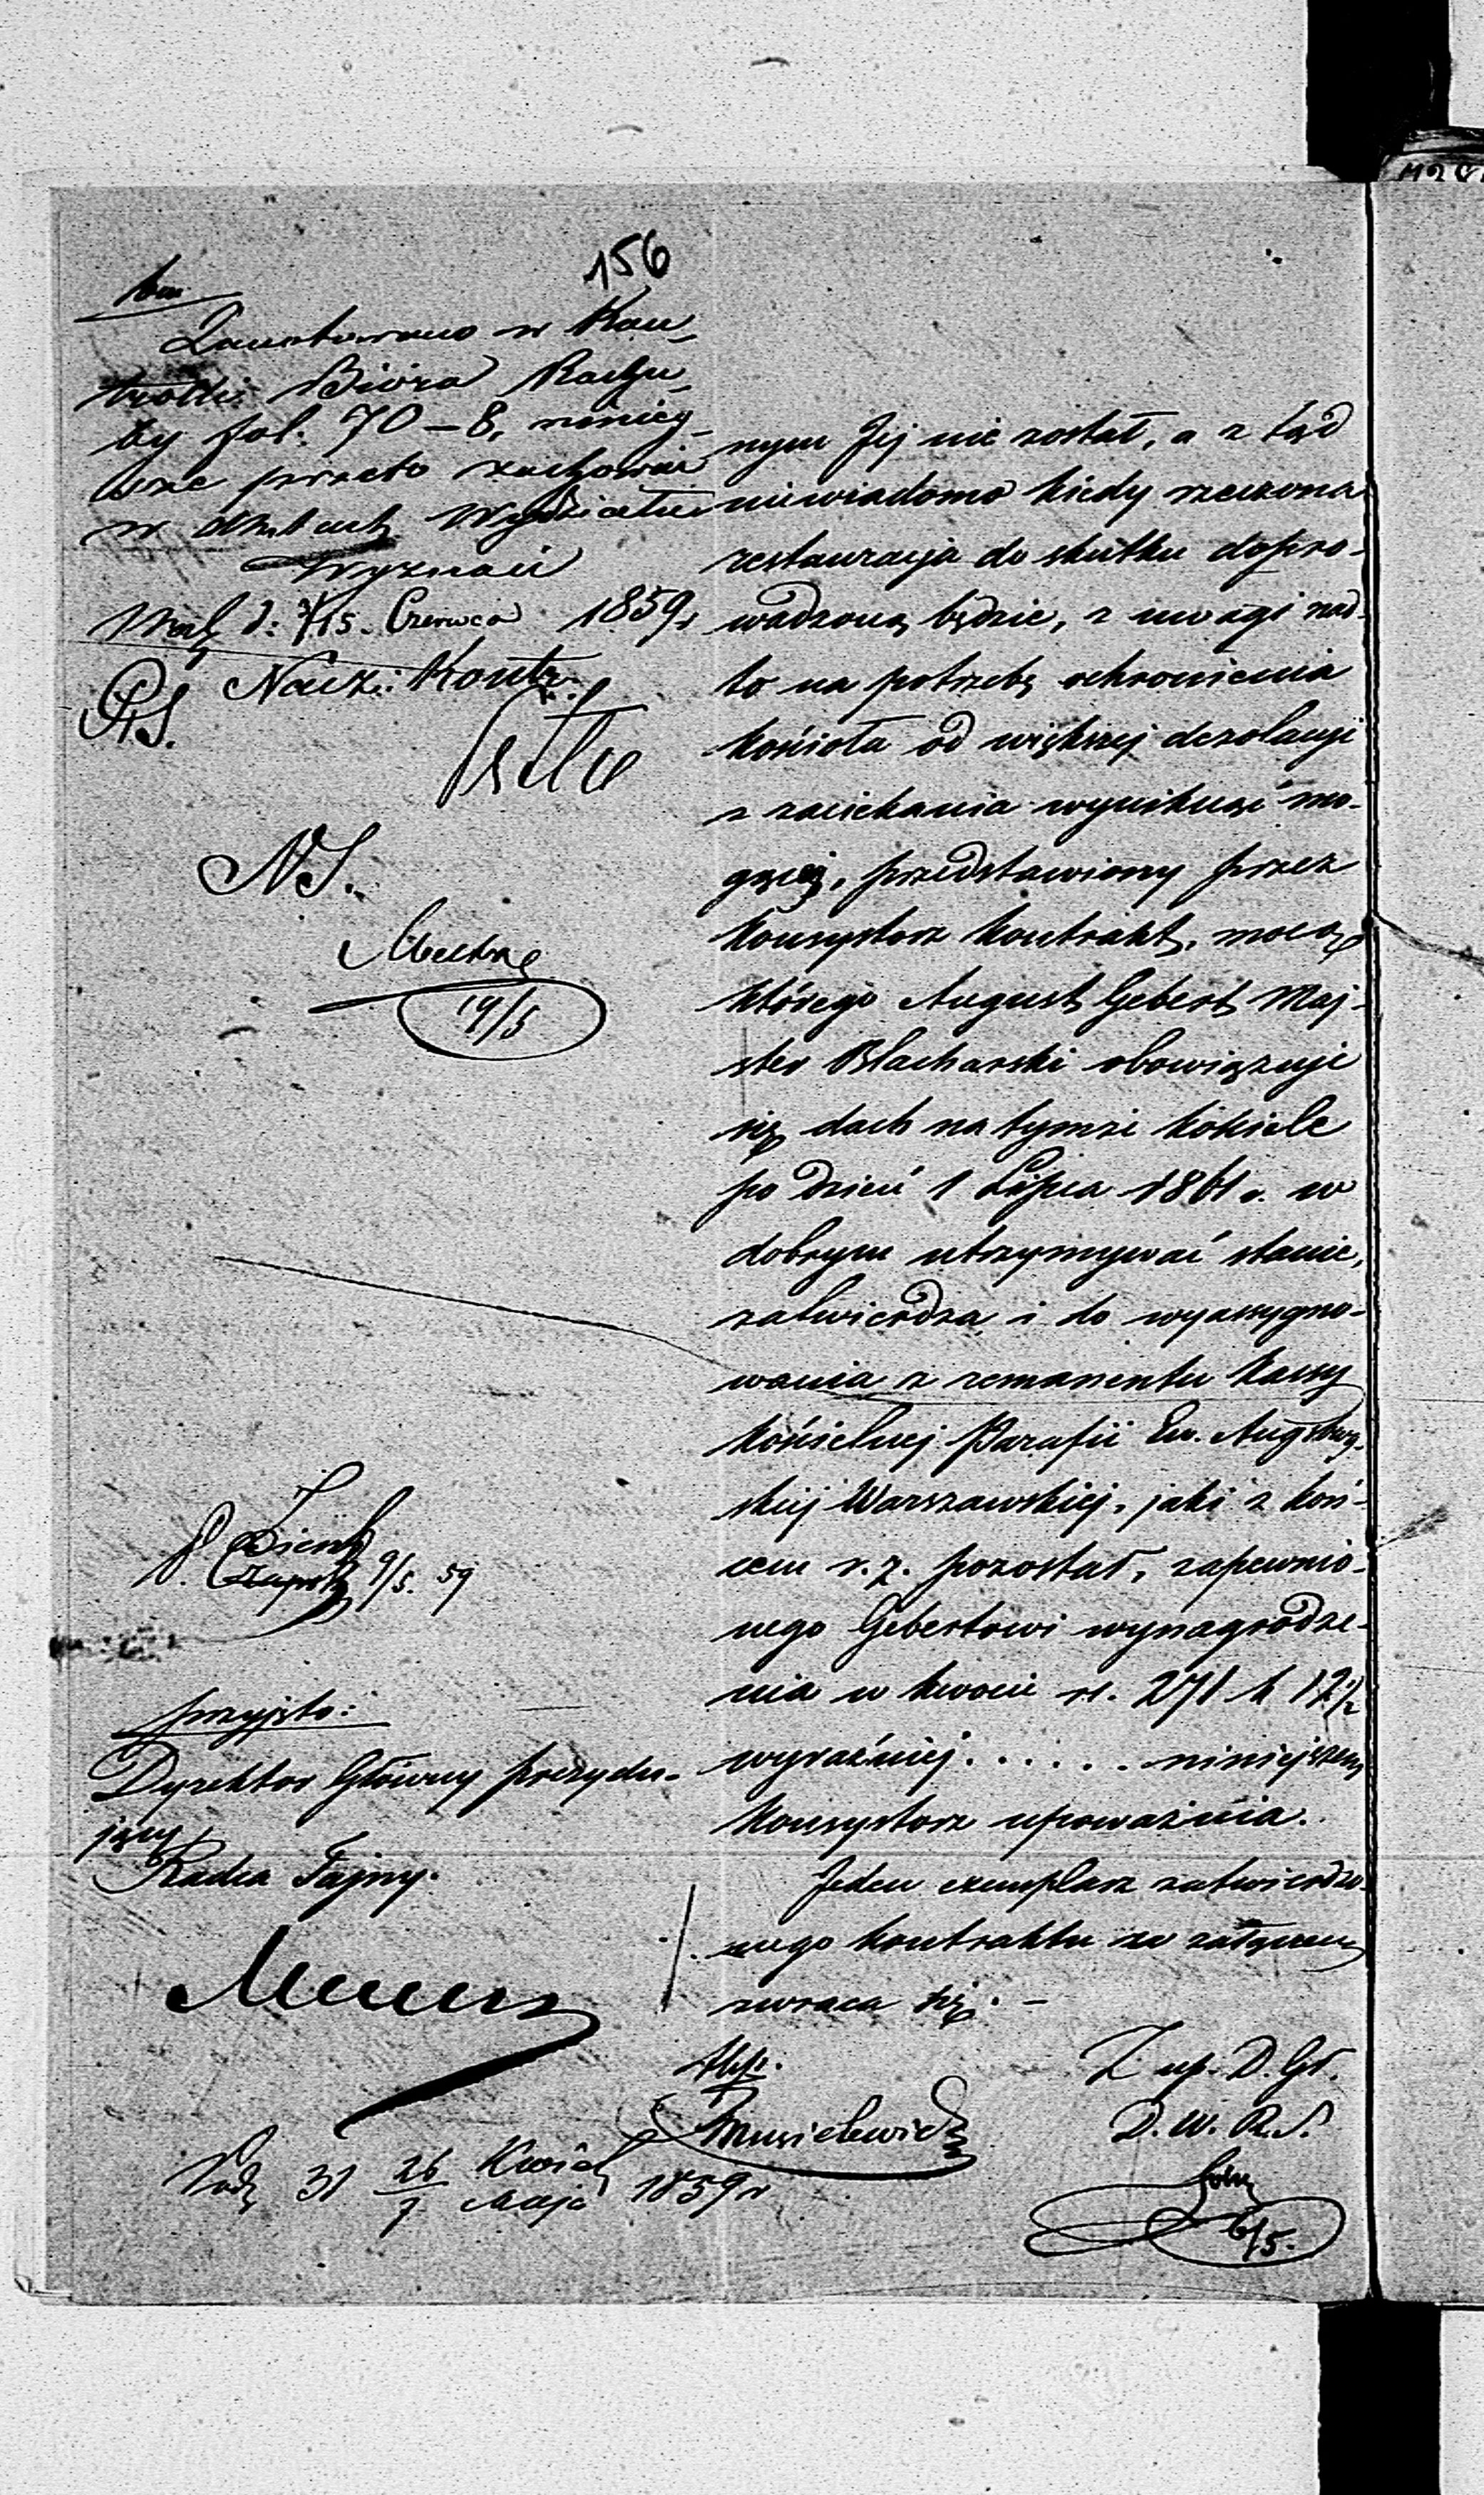 156
Zanotowano w Kon-
trolli Bióra Rachu-
by fol. 70-8, niniej-
sze przeto zachować
w aktach Wydziału
Wyznań
d: 3/15. Czerwca 1859 r
Nacz: Kontr:
NS.
14/5
9/5. 59
przyjęto:
Dyrektor Główny prezydu-
jący
Radca Tajny.
31 26/7 Kwiet/Maja 1859 r
nym Jej nie został, a z tąd
niewiadomo kiedy rzeczona
restauracja do skutku dopro-
wadzoną będzie, z uwagi nad-
to na potrzebę ochronienia
kościoła od większej dezolacyi
z zaciekania wyniknąć mo-
gącej, przedstawiony przez
Konsystorz kontrakt, mocą
którego August Gebert Maj-
ster Blacharski obowiązuje
się dach na tymże kościele
po dzień 1 Lipca 1861 r. w
dobrym utrzymywać stanie,
zatwierdza i do wyassygno-
wania z remanentu kassy
kościelnej Parafii Ew. Augsburg-
skiej Warszawskiej, jaki z koń-
cem r. z. pozostał, zapewnio-
nego Gebertowi wynagrodze-
nia w kwocie rs. 271 k 12½
wyraźniej. . . . . . niniejszem
Konsystorz upoważnia.
Jeden exemplarz zatwierdzo-
nego kontraktu ze załączeniem
zwraca się. -
Z up. D. Gł.
D. W. R. S.
6/5.